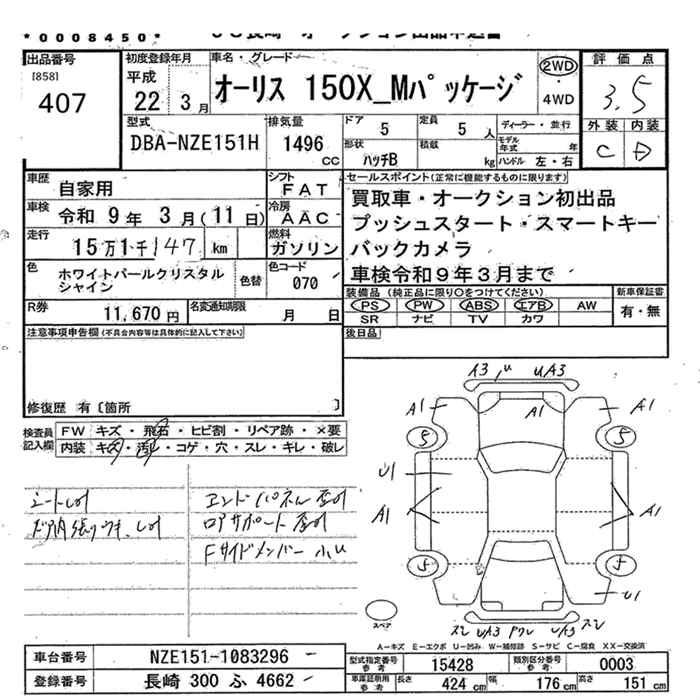 *0008450*
出品番号
[858]
407
初度登録年月
平成
22年 3月
車名・グレード
オーリス 150X_Mパッケージ
2WD
4WD
評価点
3.5
外装 内装
C D
型式
DBA-NZE151H
排気量
1496 CC
ドア
5
定員
5人
形状
ハッチB
積載
kg
ディーラー・並行
モデル年式 年
ハンドル 左・右
車歴
自家用
シフト
FAT
車検
令和 9年 3月(11日)
冷房
AAC
走行
15万1千147km
燃料
ガソリン
色
ホワイトパールクリスタル
シャイン
色替
色コード
070
R券
11,670円
名変通知期限
月 日
セールスポイント(正常に機能するものに限ります)
買取車・オークション初出品
プッシュスタート・スマートキー
バックカメラ
車検令和9年3月まで
装備品(純正品に限り○をつけてください)
PS PW ABS エアB AW
SR ナビ TV カワ
新車保証書
有・無
注意事項申告欄(不具合内容等は具体的に記入して下さい)
後日品
修復歴 有〔箇所 〕
検査員
記入欄
FW キズ・飛石・ヒビ割・リペア跡・×要
内装 キズ・汚れ・コゲ・穴・スレ・キレ・破レ
エンドパネル
ロアサポート
Fサイドメンバー 小U
A3 U UA3
A1 A1 A1
5 5
U1
A1 A1
5 5
U1
UA3 UA3
スペア
A-キズ E-エクボ U-凹み W-補修跡 S-サビ C-腐食 XX-交換済
車台番号 NZE151-1083296
登録番号 長崎 300 ふ 4662
型式指定番号
参考
15428
類別区分番号
参考
0003
車庫証明用
参考
長さ 424cm
幅 176cm
高さ 151cm